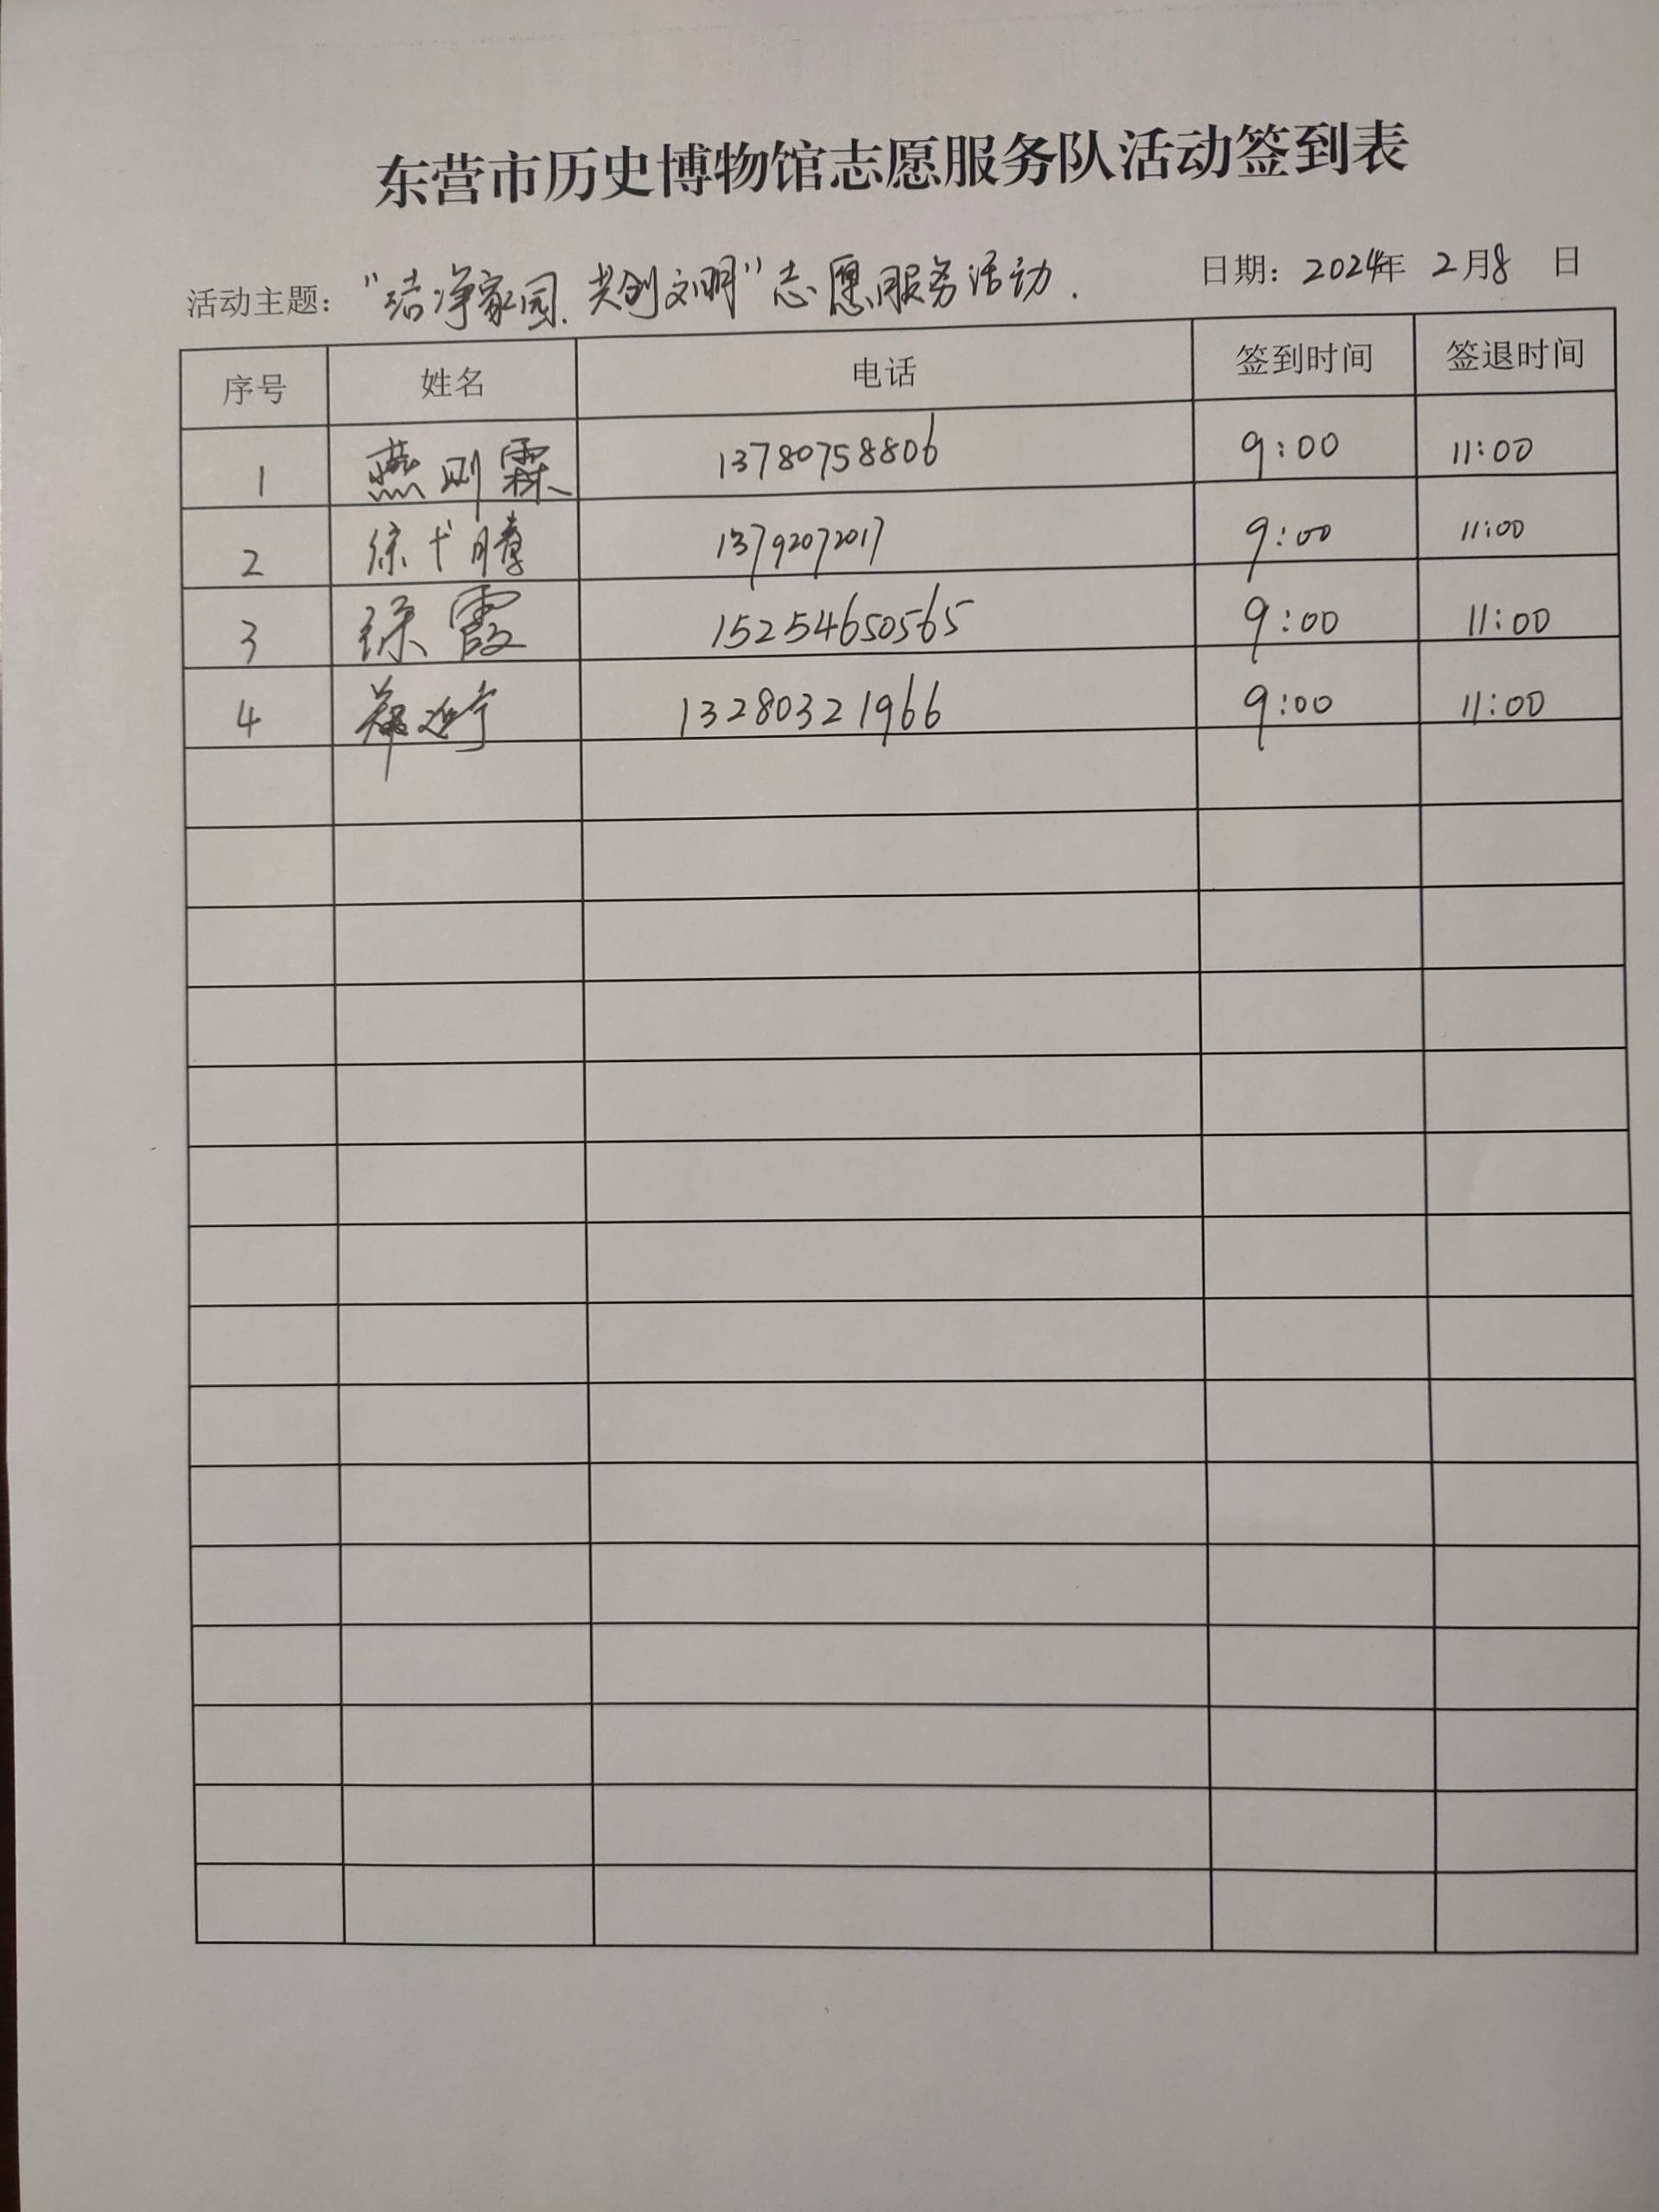 东营市历史博物馆志愿服务队活动签到表
活动主题：“洁净家园.共创文明”志愿服务活动. 日期：2024年 2月8 日
序号 姓名 电话 签到时间 签退时间
1 燕刚霖 13780758806 9:00 11:00
2 徐 13792072017 9:00 11:00
3 徐霞 15254650565 9:00 11:00
4 郑 13280321966 9:00 11:00